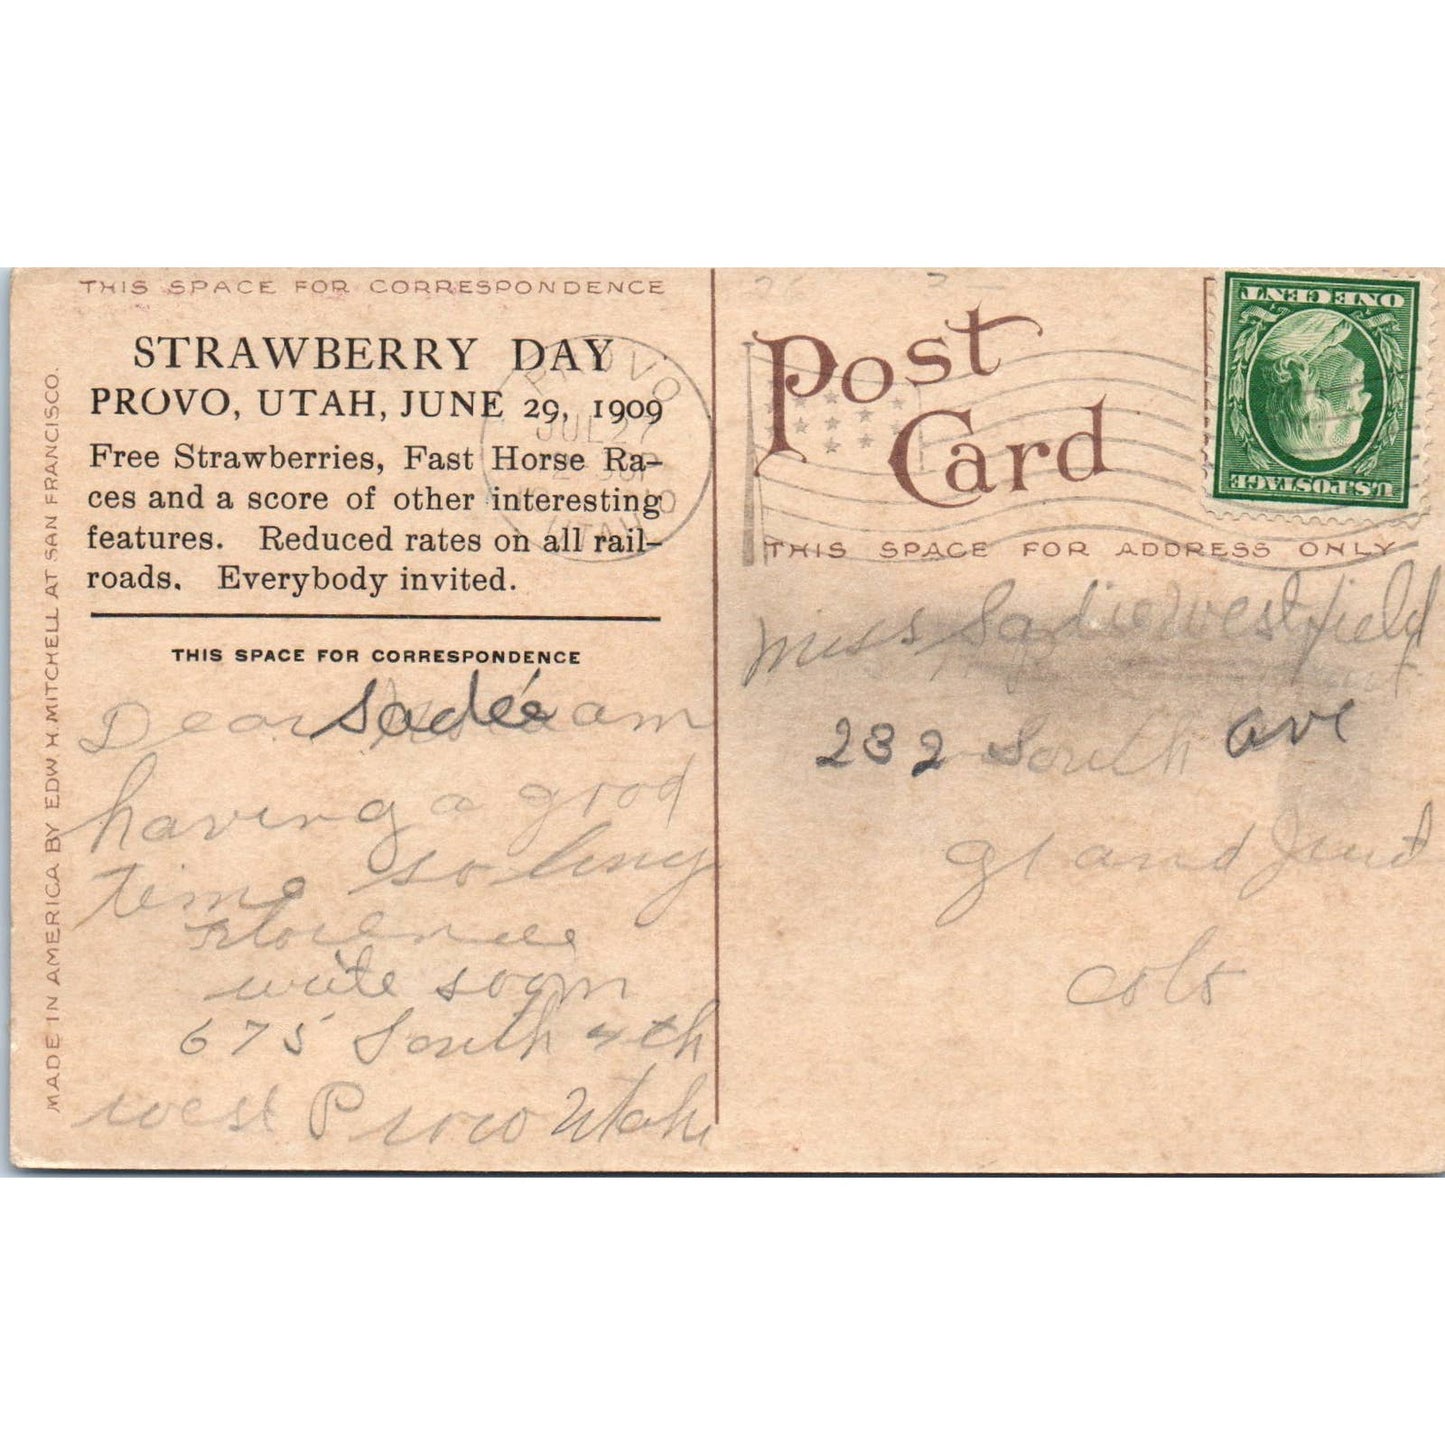 THIS SPACE FOR CORRESPONDENCE
STRAWBERRY DAY
PROVO, UTAH, JUNE 29, 1909
Free Strawberries, Fast Horse Ra-
ces and a score of other interesting
features. Reduced rates on all rail-
roads. Everybody invited.
THIS SPACE FOR CORRESPONDENCE
Dear Sadée am
having a good
time so long
Florence
write soon
675 South 4th
west Provo Utah
MADE IN AMERICA BY EDW H. MITCHELL AT SAN FRANCISCO.
PROVO
JUL 27
UTAH
Post
Card
THIS SPACE FOR ADDRESS ONLY
U.S. POSTAGE
ONE CENT
Miss Sadie Westfield
232 South ave
grand Junct
Colo